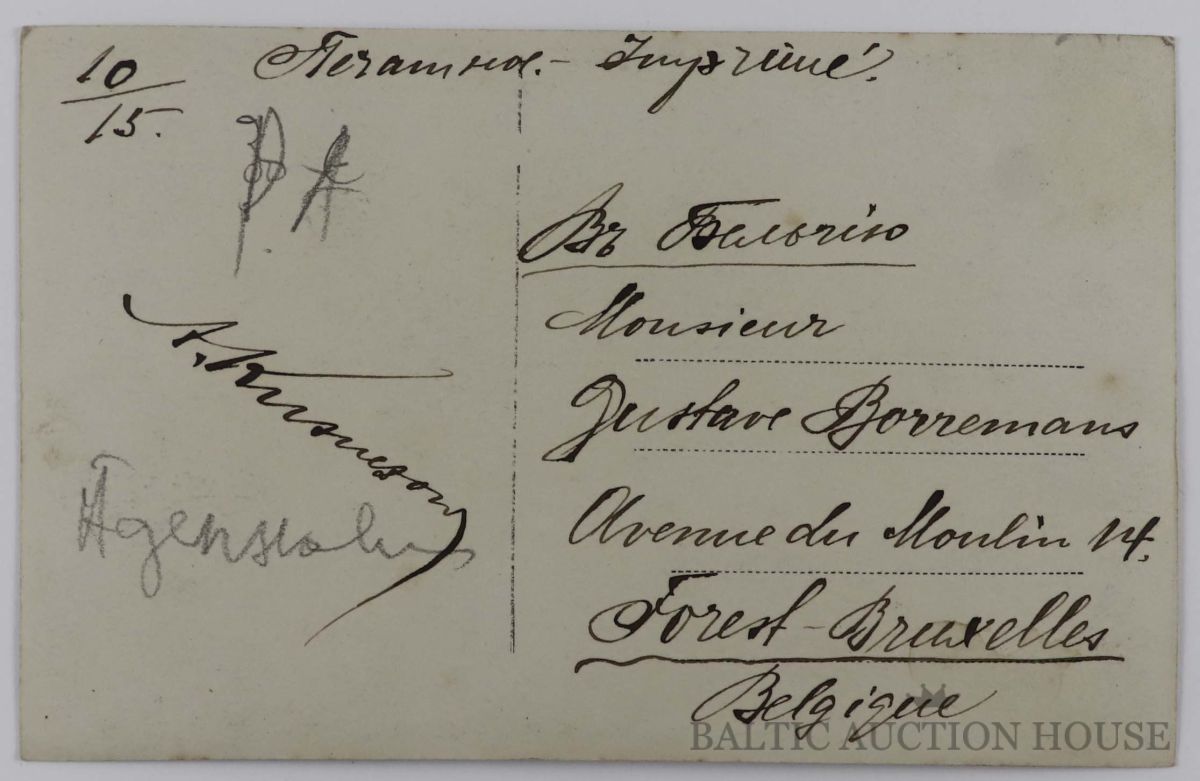 10
15.
Печатное.- Imprimé.
P. A
Въ Бельгію
Monsieur
Gustave Borremans
Avenue du Moulin 14.
Forest-Bruxelles
Belgique
BALTIC AUCTION HOUSE